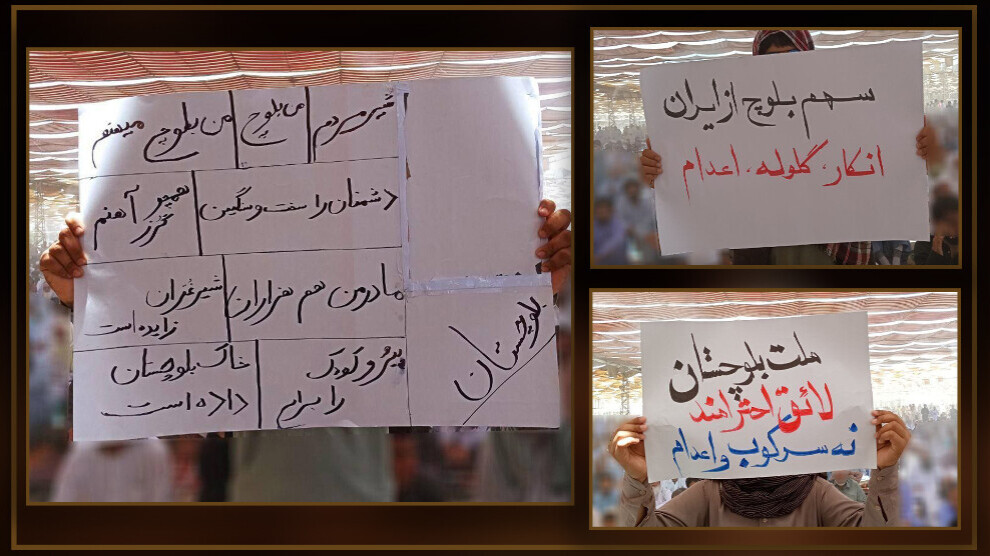 شیر مردم من بلوچ من بلوچ میهنم
دشمنان را سفت و سنگین همچو گرز آهنم
مادر من هم هزاران شیر غران زایده است
پیر و کودک را برای خاک بلوچستان داده است
بلوچستان
سهم بلوچ از ایران
انکار، گلوله، اعدام
ملت بلوچستان
لائق احترامند
نه سرکوب و اعدام